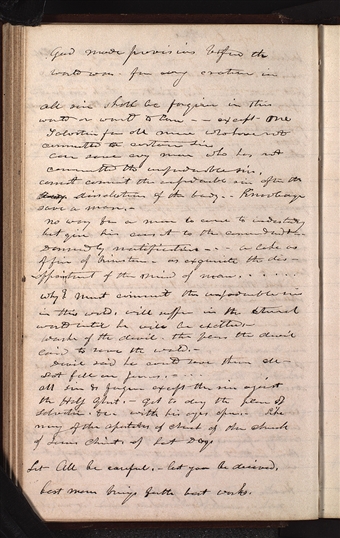 God made provisions before the
world was for every creature in
all sin shall be forgiven in this
world or world to come -- except one
Salvation for all men who have not
committed a certain sin
can save any man who has not
committed the unpardonable sin,
cannot commit the unpardonable sin after the
dissolution of the body. Knowledge
saves a man.
no way for a man to come to understanding
but give his assent to the commandment
Damned by mortification -- a lake as
of fire of brimstone as exquisite the dis-
appointment of the mind of man. . . . .
why? must commit the unpardonable sin
in this world, will suffer in the eternal
world until he will be exalted.
work of the devil. the plans the devil
laid to save the world. -
Devil said he could save them all -
Lot fell on Jesus. . . .
all sin &c forgiven except the sin against
the Holy Ghost. - got to deny the plan of
Salvation &c. with his eyes open. Like
many of the apostates of Christ of the church
of Jesus Christ of Last Days
Let All be careful. - lest you be deceived,
best man brings forth best works.